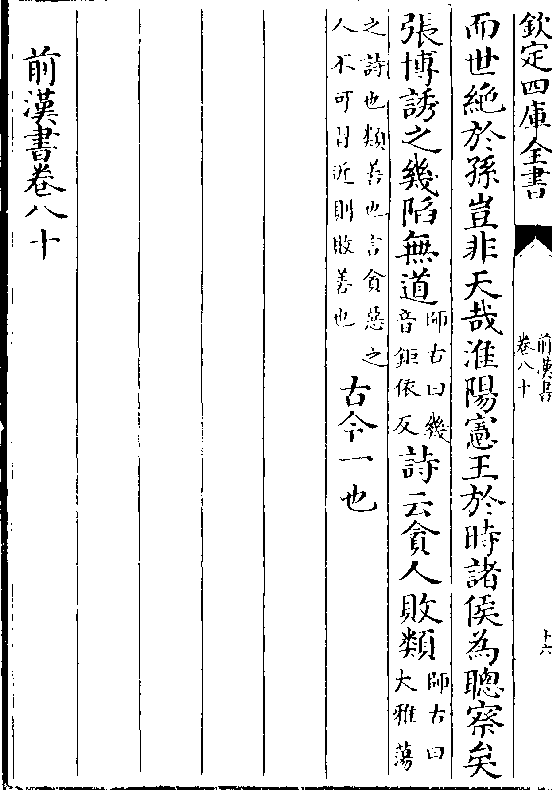 欽定四庫全書
前漢書
卷八十
十六
而世絶於孫豈非天哉淮陽憲王於時諸侯為聰察矣
張博誘之幾陷無道師古曰幾音鉅依反詩云貪人敗類師古曰大雅蕩
之詩也類善也言貪惡之人不可習近則敗善也古今一也
前漢書卷八十